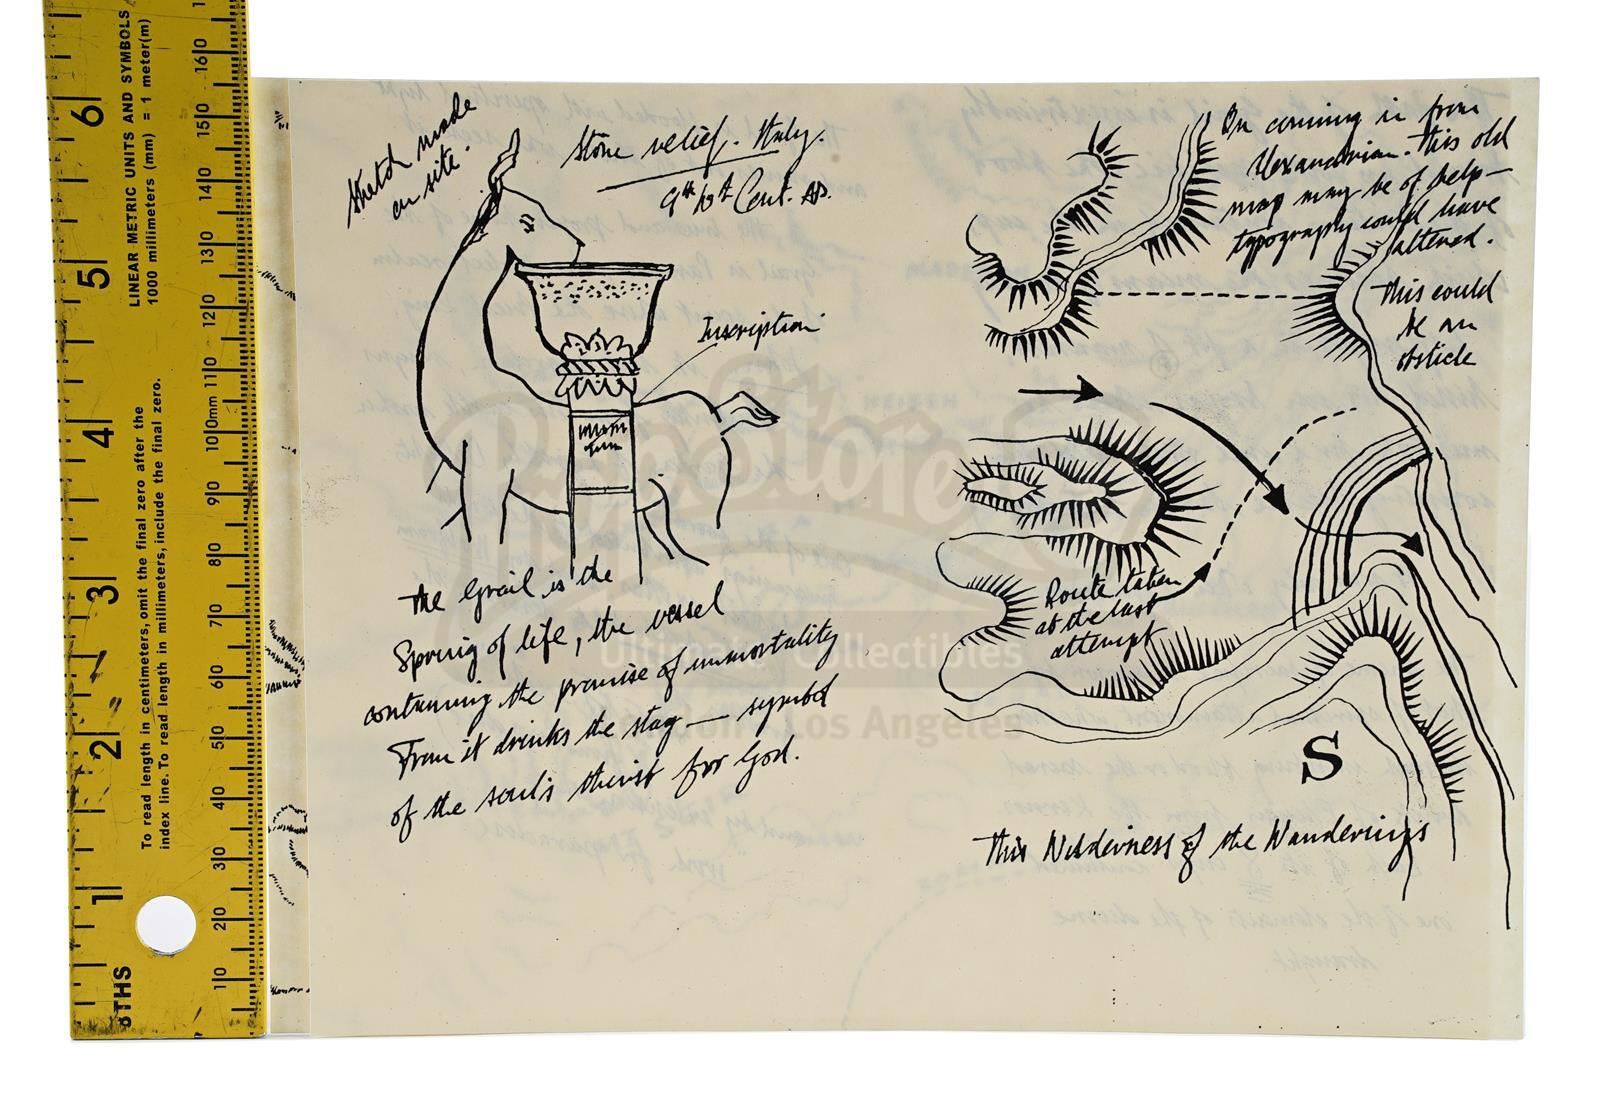 Sketch made
on site.
Stone relief. Italy.
9th 10th Cent. AD.
Inscription
The Grail is the
Spring of life, the vessel
containing the promise of immortality
From it drinks the stag — symbol
of the soul's thirst for God.
On coming in from
Alexandrian. This old
map may be of help—
typography could have
altered.
This could
be an
obsticle
Route taken
at the last
attempt
S
This Wilderness of the Wanderings
PropStore
Ultimate Collectibles
London Los Angeles
LINEAR METRIC UNITS AND SYMBOLS
1000 millimeters (mm) = 1 meter(m)
To read length in centimeters, omit the final zero after the
index line. To read length in millimeters, include the final zero.
8THS
1
2
3
4
5
6
10
20
30
40
50
60
70
80
90
100mm
110
120
130
140
150
160